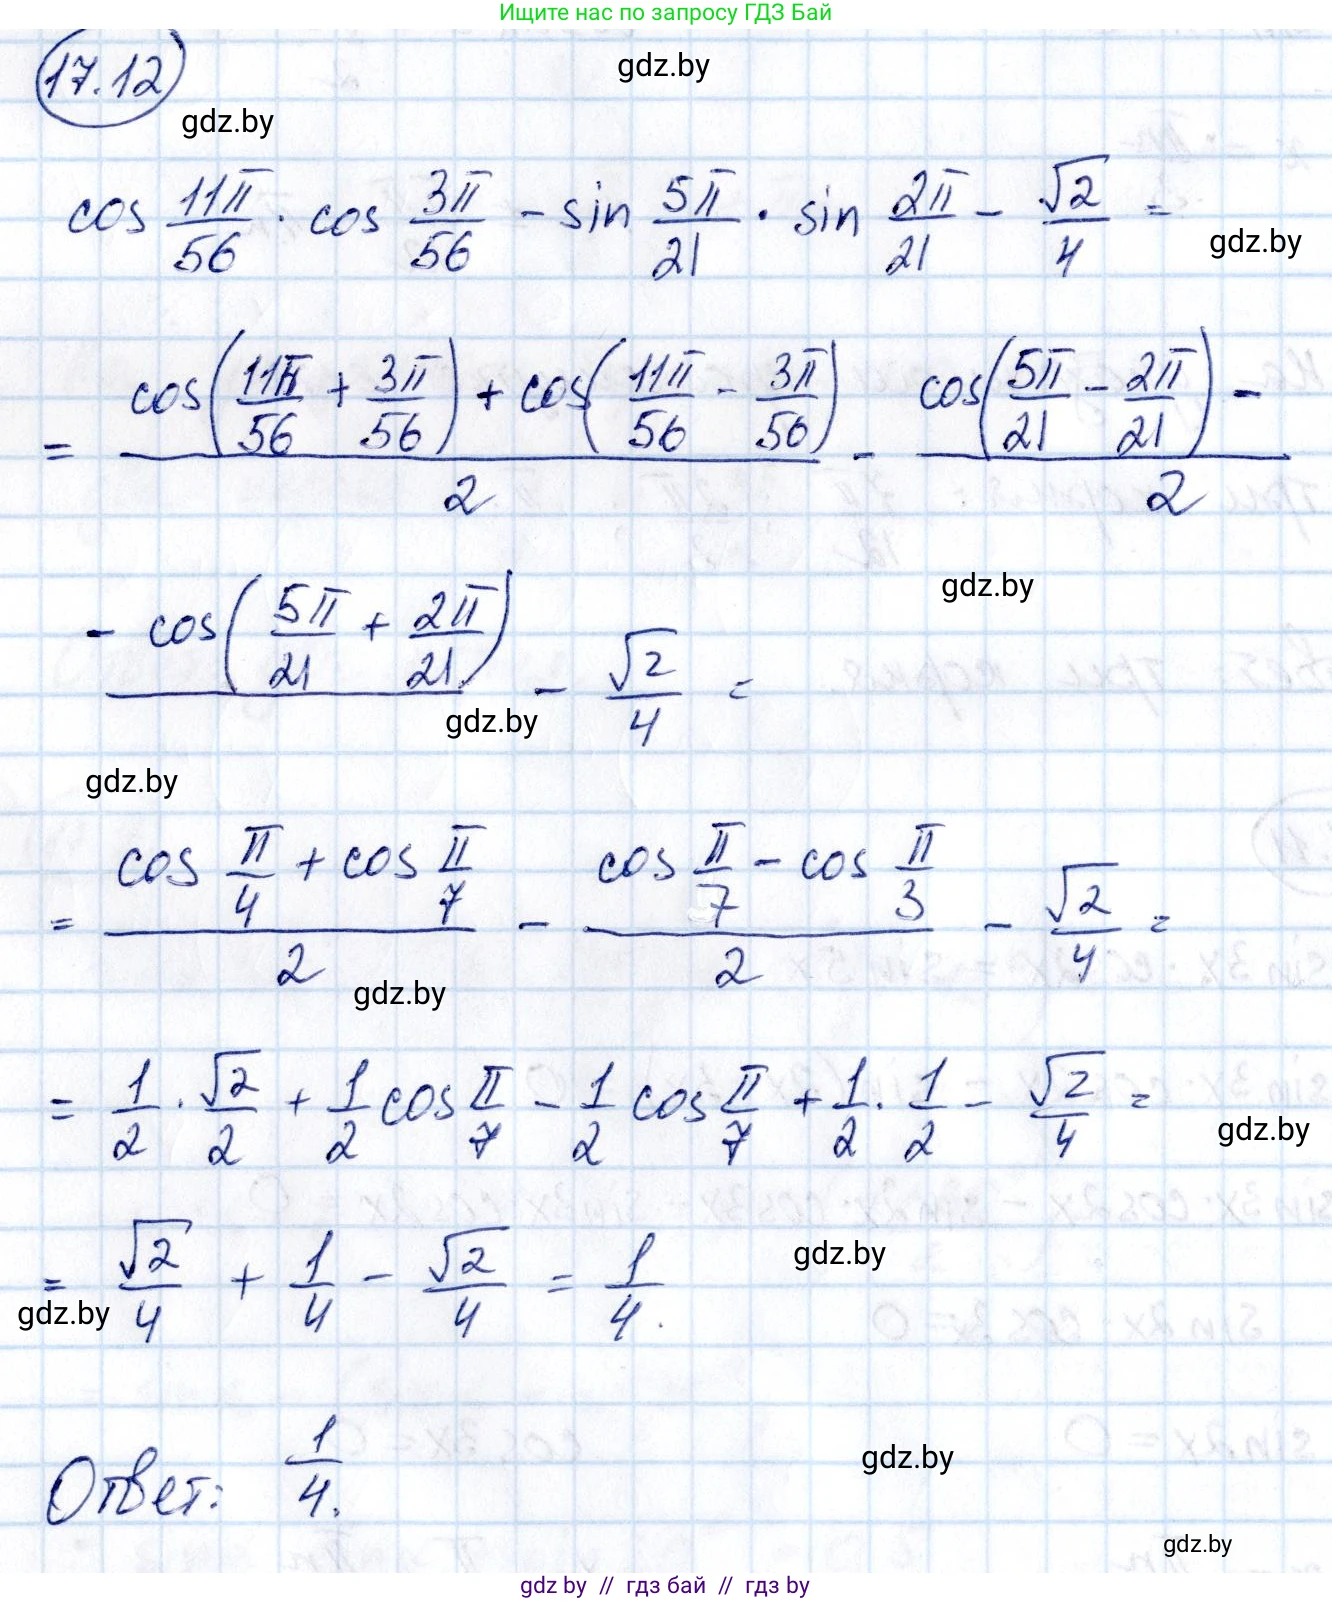 Ищите нас по запросу ГДЗ Бай
17.12
gdz.by
gdz.by
cos 11π/56 · cos 3π/56 - sin 5π/21 · sin 2π/21 - √2/4 =
gdz.by
= (cos(11π/56 + 3π/56) + cos(11π/56 - 3π/56))/2 - (cos(5π/21 - 2π/21) -)/2
gdz.by
(- cos(5π/21 + 2π/21)) - √2/4 =
gdz.by
gdz.by
= (cos π/4 + cos π/7)/2 - (cos π/7 - cos π/3)/2 - √2/4 =
gdz.by
= 1/2 · √2/2 + 1/2 cos π/7 - 1/2 cos π/7 + 1/2 · 1/2 - √2/4 =
gdz.by
= √2/4 + 1/4 - √2/4 = 1/4.
gdz.by
gdz.by
Ответ: 1/4.
gdz.by
gdz.by
gdz by // гдз бай // гдз by